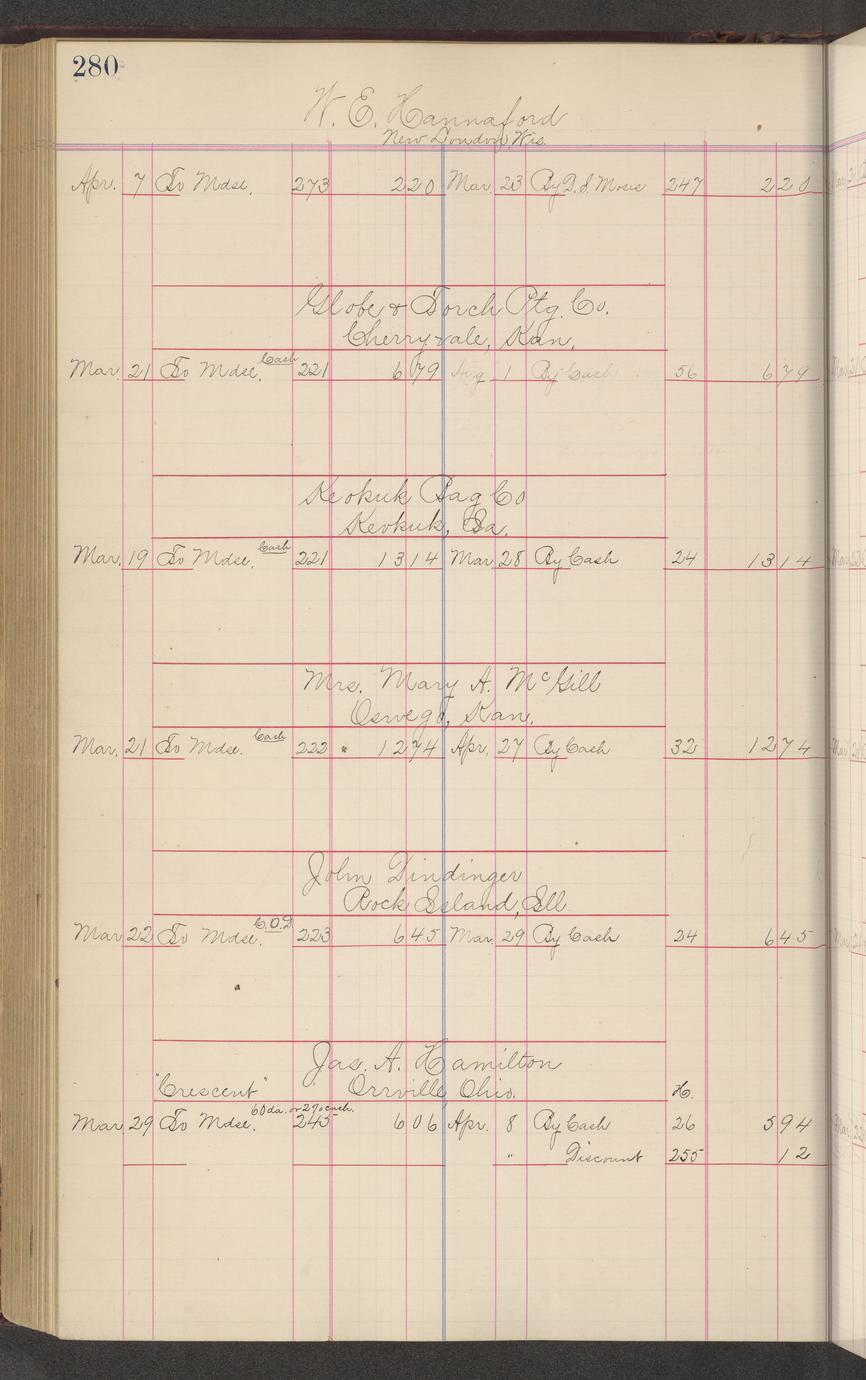 280
W. E. Hannaford
New London, Wis.
Apr. 7 To Mdse. 273 2 20 Mar. 23 By D. S. Moses 247 2 20
Globe & Torch Ptg. Co.
Cherryvale, Kan.
Mar. 21 To Mdse. Cash 221 6 79 Aug 1 By Cash 56 6 79
Keokuk Bag Co
Keokuk, Ia.
Mar. 19 To Mdse. Cash 221 13 14 Mar. 28 By Cash 24 13 14
Mrs. Mary A. McGill
Oswego, Kan.
Mar. 21 To Mdse. Cash 222 12 74 Apr. 27 By Cash 32 12 74
John Dindinger
Rock Island, Ill
Mar. 22 To Mdse. C.O.D. 223 6 45 Mar. 29 By Cash 24 6 45
Jas. A. Hamilton
"Crescent" Orrville, Ohio. H.
60 da. or 2% cash.
Mar. 29 To Mdse. 245 6 06 Apr. 8 By Cash 26 5 94
" Discount 255 12